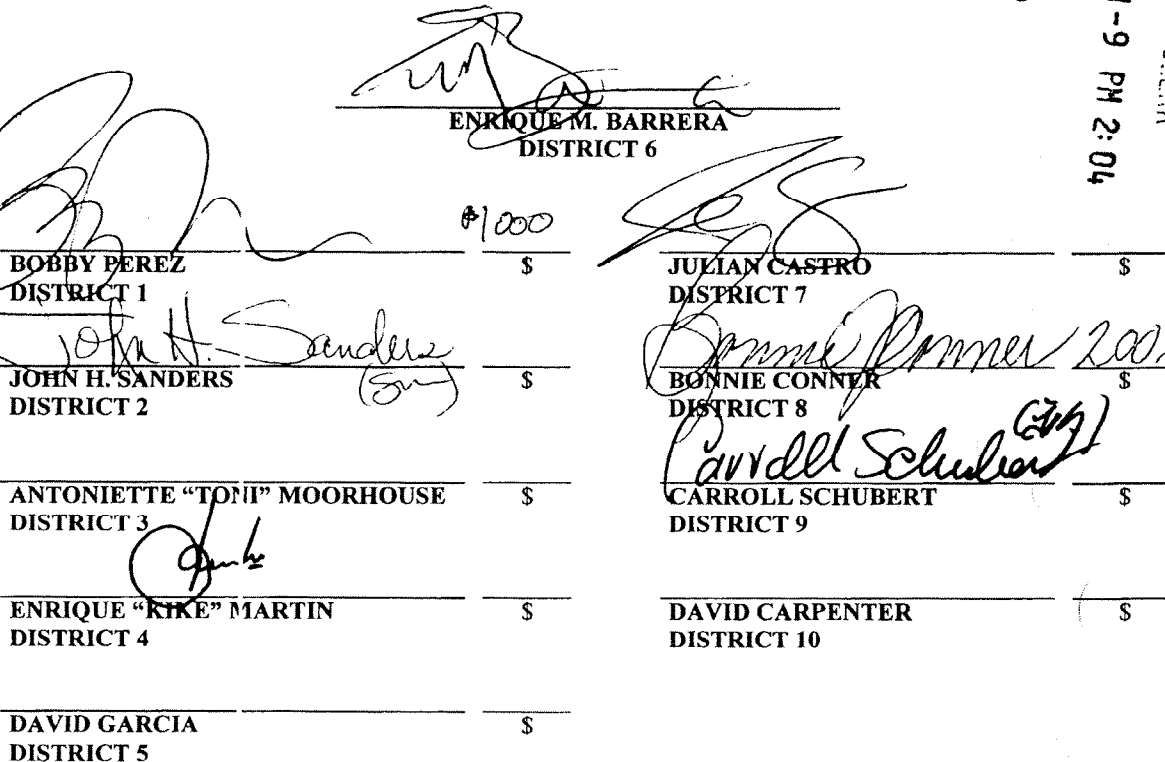 1-9 PM 2:04
ENRIQUE M. BARRERA
DISTRICT 6
$1000
BOBBY PEREZ $
DISTRICT 1
John H. Sanders
JOHN H. SANDERS $
DISTRICT 2
ANTONIETTE “TONI” MOORHOUSE $
DISTRICT 3
ENRIQUE “KIKE” MARTIN $
DISTRICT 4
DAVID GARCIA $
DISTRICT 5
JULIAN CASTRO $
DISTRICT 7
Bonnie Conner 200.
BONNIE CONNER $
DISTRICT 8
Carroll Schubert
CARROLL SCHUBERT $
DISTRICT 9
DAVID CARPENTER $
DISTRICT 10